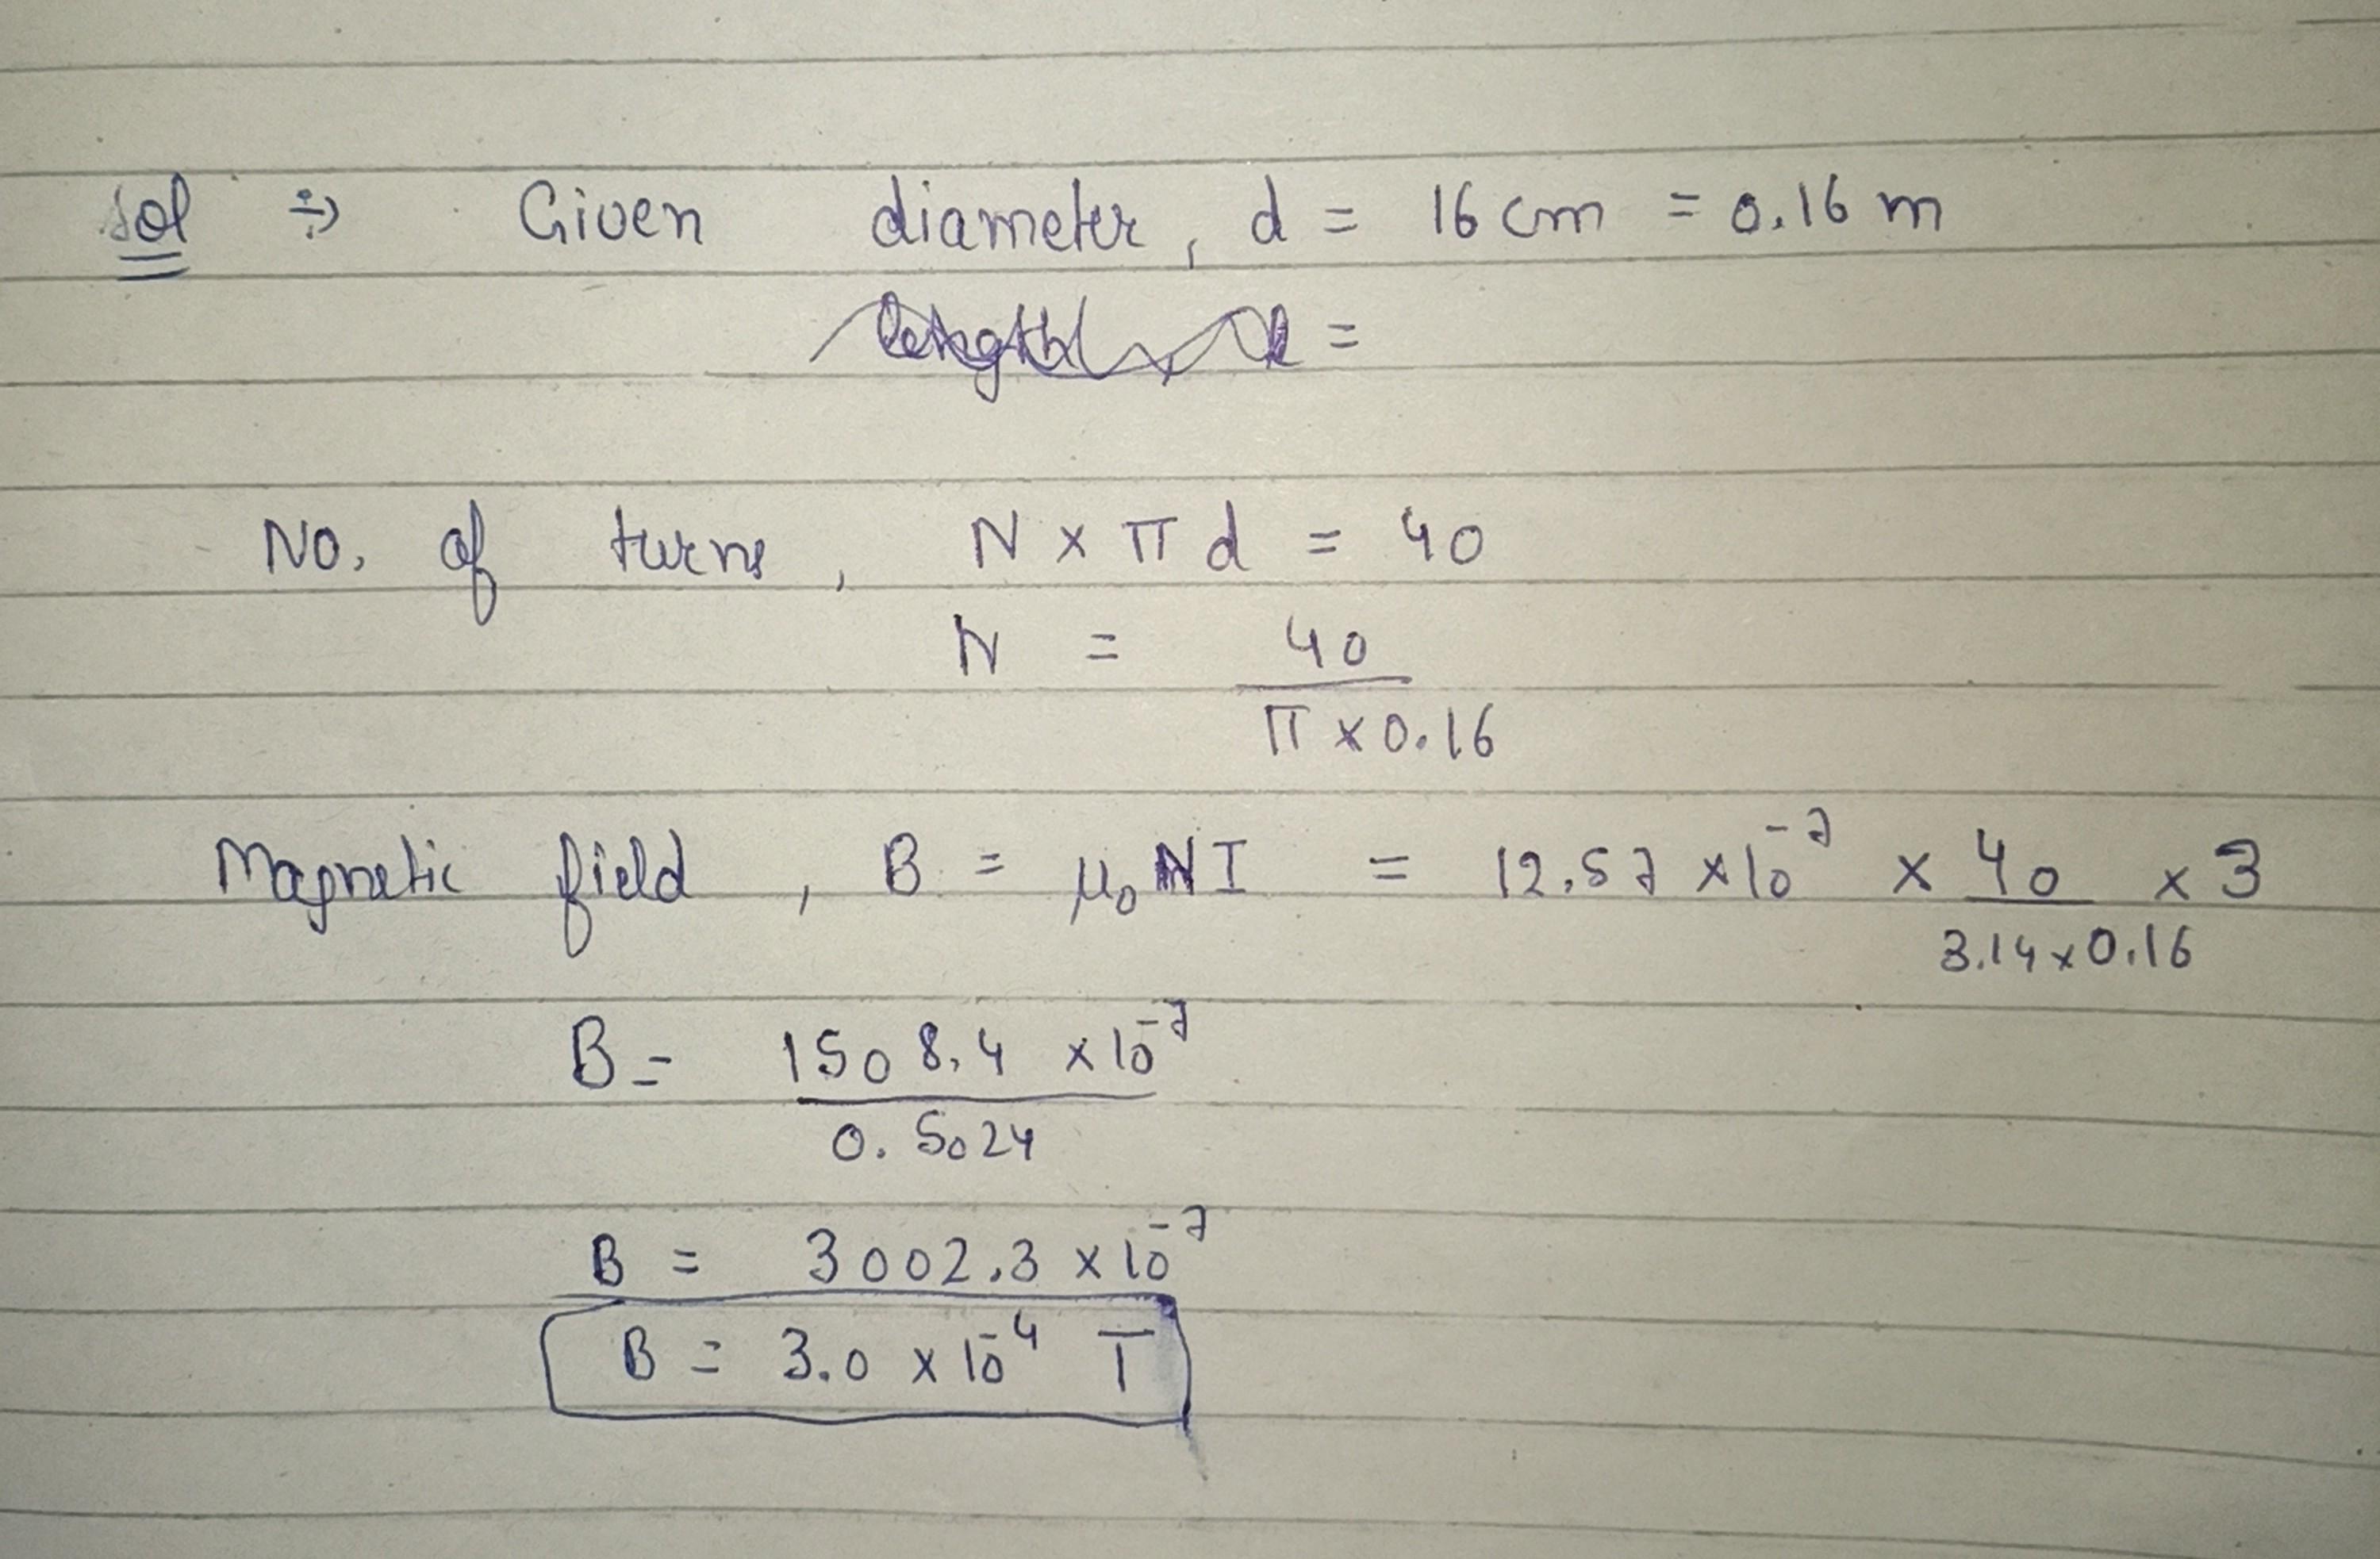 Sol ⇒ Given diameter, d = 16 cm = 0.16 m
length, l =
No. of turns, N × π d = 40
N = 40 / π × 0.16
Magnetic field, B = μ₀ N I = 12.57 × 10⁻⁷ × 40 / 3.14 × 0.16 × 3
B = 1508.4 × 10⁻⁷ / 0.5024
B = 3002.3 × 10⁻⁷
B = 3.0 × 10⁻⁴ T